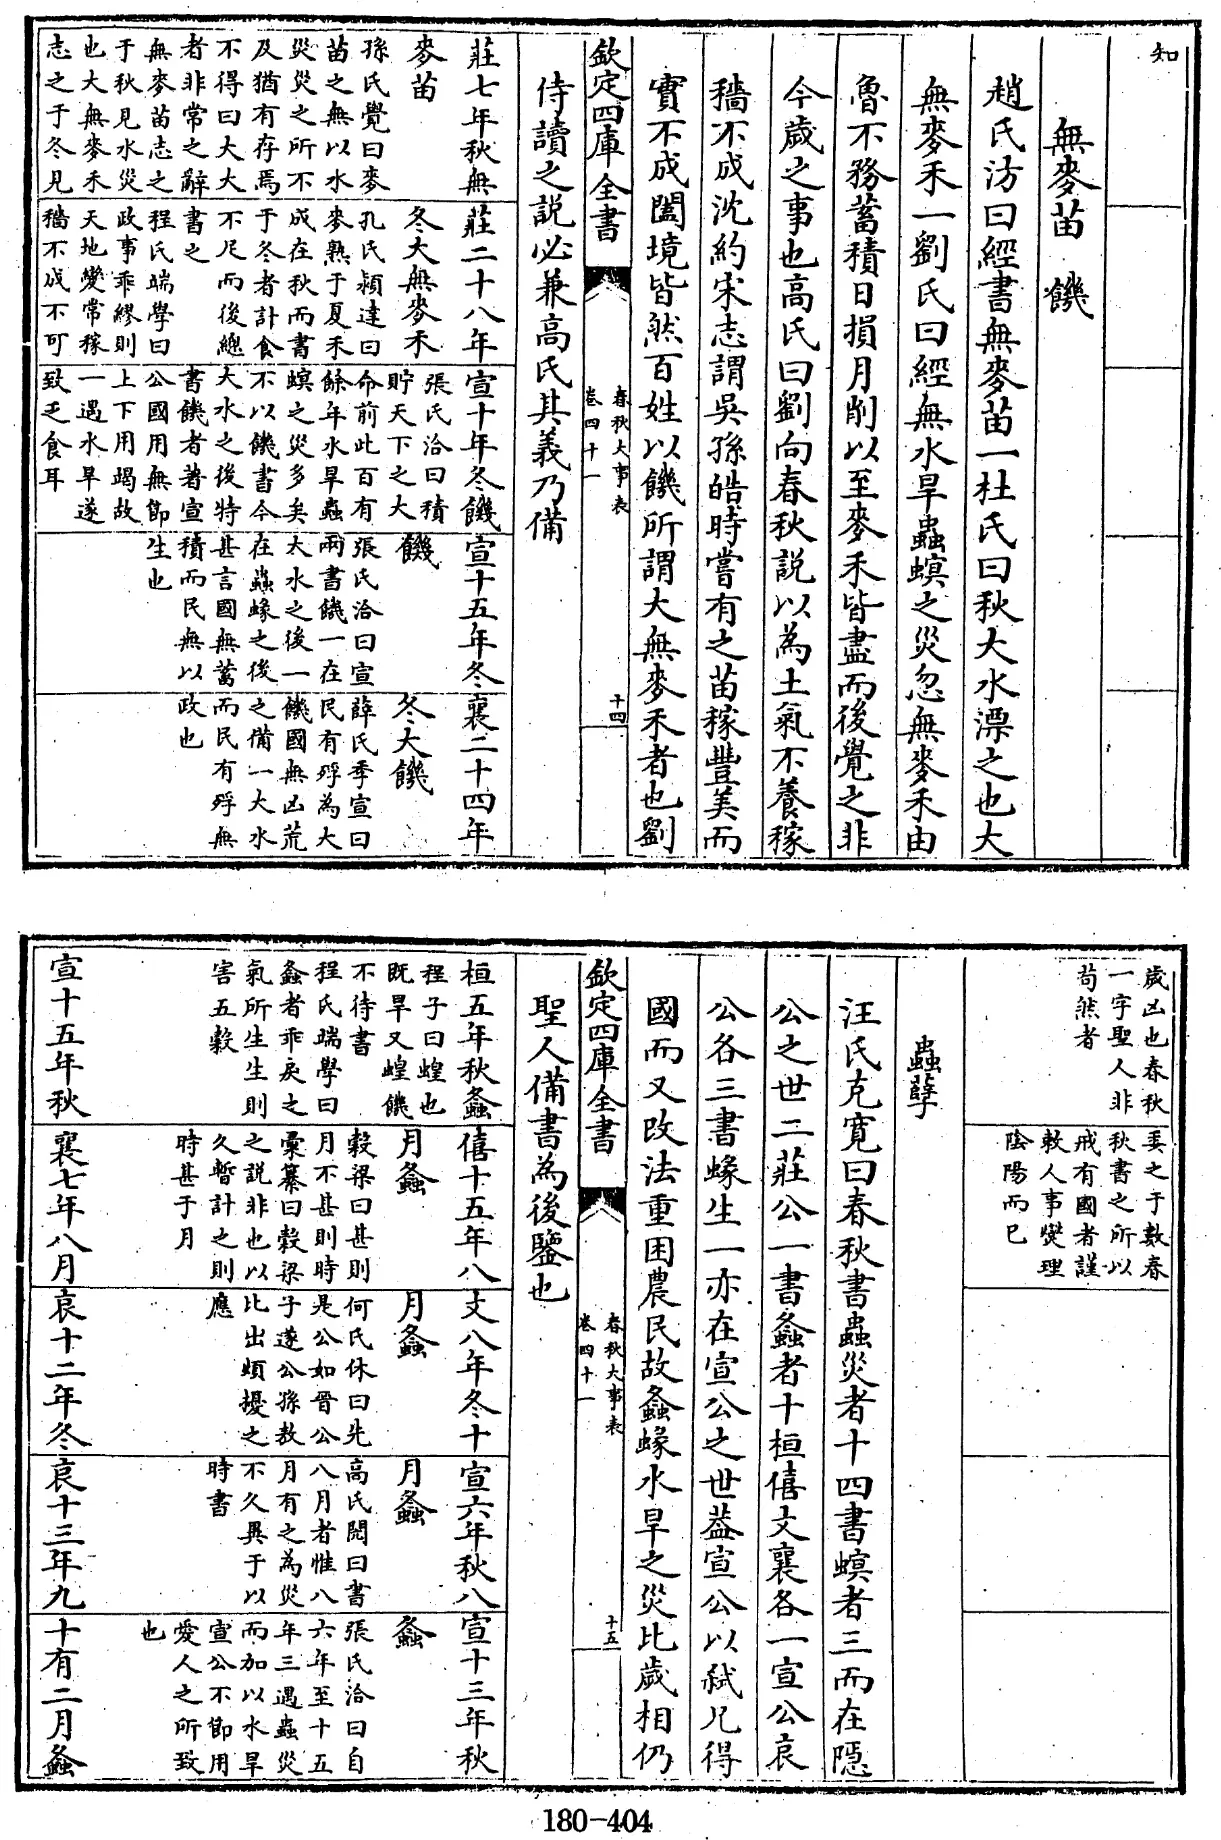 知
無麥苗 饑
趙氏汸曰經書無麥苗一杜氏曰秋大水漂之也大
無麥禾一劉氏曰經無水旱蟲螟之災忽無麥禾由
魯不務蓄積日損月削以至麥禾皆盡而後覺之非
今歲之事也高氏曰劉向春秋説以為土氣不養稼
穡不成沈約宋志謂吳孫皓時嘗有之苗稼豐美而
實不成闔境皆然百姓以饑所謂大無麥禾者也劉
欽定四庫全書
春秋大事表
卷四十一
十四
侍讀之説必兼高氏其義乃備
莊七年秋無
麥苗
孫氏覺曰麥
苗之無以水
災災之所不
及猶有存焉
不得曰大大
者非常之辭
無麥苗志之
于秋見水災
也大無麥禾
志之于冬見
莊二十八年
冬大無麥禾
孔氏穎達曰
麥熟于夏禾
成在秋而書
于冬者計食
不足而後總
書之
程氏端學曰
政事乖繆則
天地變常稼
穡不成不可
宣十年冬饑
張氏洽曰積
貯天下之大
命前此百有
餘年水旱蟲
螟之災多矣
不以饑書今
大水之後特
書饑者著宣
公國用無節
上下用竭故
一遇水旱遂
致乏食耳
宣十五年冬
饑
張氏洽曰宣
兩書饑一在
大水之後一
在蟲蝝之後
甚言國無蓄
積而民無以
生也
襄二十四年
冬大饑
薛氏季宣曰
民有殍為大
饑國無凶荒
之備一大水
而民有殍無
政也
歲凶也春秋
一字聖人非
苟然者
委之于數春
秋書之所以
戒有國者謹
敕人事燮理
陰陽而已
蟲孽
汪氏克寬曰春秋書蟲災者十四書螟者三而在隱
公之世二莊公一書螽者十桓僖文襄各一宣公哀
公各三書蝝生一亦在宣公之世葢宣公以弒凡得
國而又改法重困農民故螽蝝水旱之災比歲相仍
欽定四庫全書
春秋大事表
卷四十一
十五
聖人備書為後鑒也
桓五年秋螽
程子曰蝗也
既旱又蝗饑
不待書
程氏端學曰
螽者乖戾之
氣所生生則
害五穀
僖十五年八
月螽
穀梁曰甚則
月不甚則時
彙纂曰穀梁
之説非也以
久暫計之則
時甚于月
文八年冬十
月螽
何氏休曰先
是公如晉公
子遂公孫敖
比出煩擾之
應
宣六年秋八
月螽
高氏閌曰書
八月者惟八
月有之為災
不久異于以
時書
宣十三年秋
螽
張氏洽曰自
六年至十五
年三遇蟲災
而加以水旱
宣公不節用
愛人之所致
也
宣十五年秋
襄七年八月
哀十二年冬
哀十三年九
十有二月螽
180-404